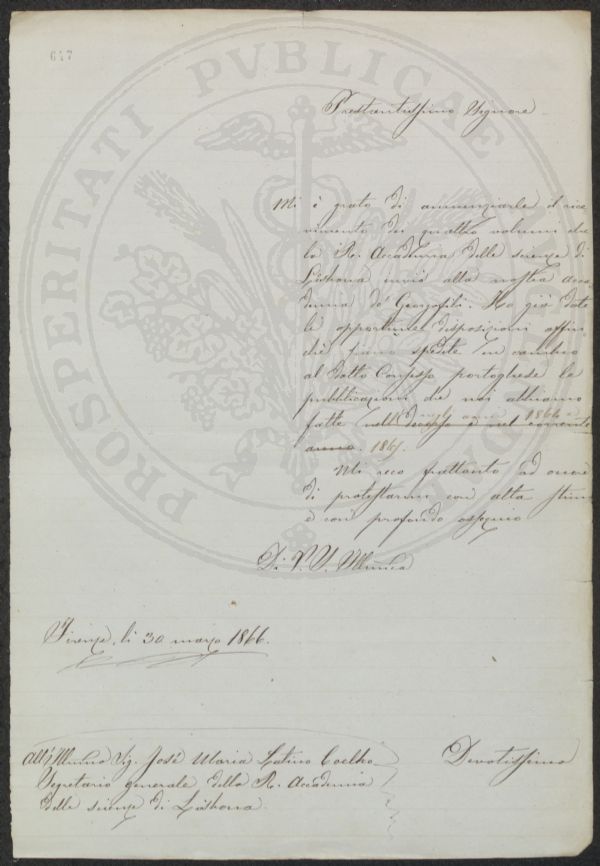 647
PROSPERITATI PVBLICAE
Prestantissimo Signore
Mi è grato di annunziarle il rice
vimento dei quattro volumi che
la R. Accademia delle scienze di
Lisbona inviò alla nostra acca
demia de' Georgofili. Ho già date
le opportune disposizioni affin
chè siano spedite in cambio
al dotto Consesso portoghese le
pubblicazioni che noi abbiamo
fatte negli anni 1864 e
nel corrente
anno. 1865.
Mi reco frattanto ad onore
di protestarmi con alta stima
e con profondo ossequio
Di V. S. Illma
Firenze, li 30 marzo 1866.
All'Illmo Sig. José Maria Latino Coelho
Devotissimo
Segretario generale della R. Accademia
delle scienze di Lisbona.